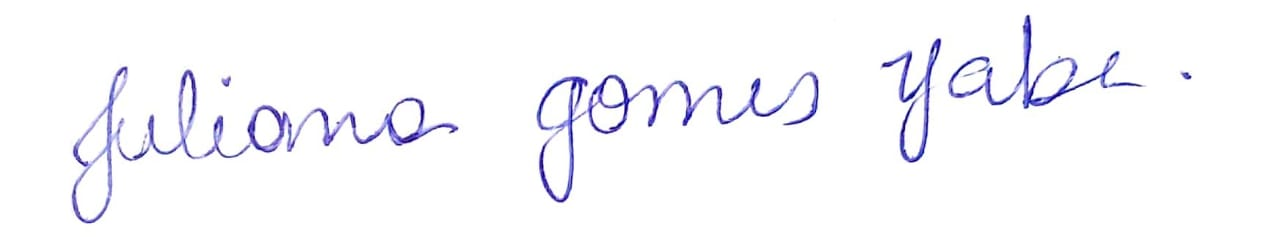 Juliana gomes yabe.